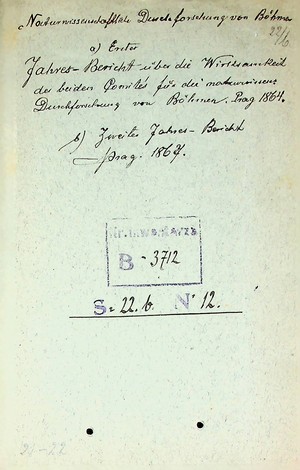 Naturwissenschaftliche Durchforschung von Böhmen
22/b
a) Erster
Jahres-Bericht über die Wirksamkeit
der beiden Comités für die naturwissens
Durchforschung von Böhmen. Prag 1864.
b) Zweites Jahres-Bericht
Prag. 1867.
Nr. inwentarza
B - 3712
S= 22.b. N 12.
21-22